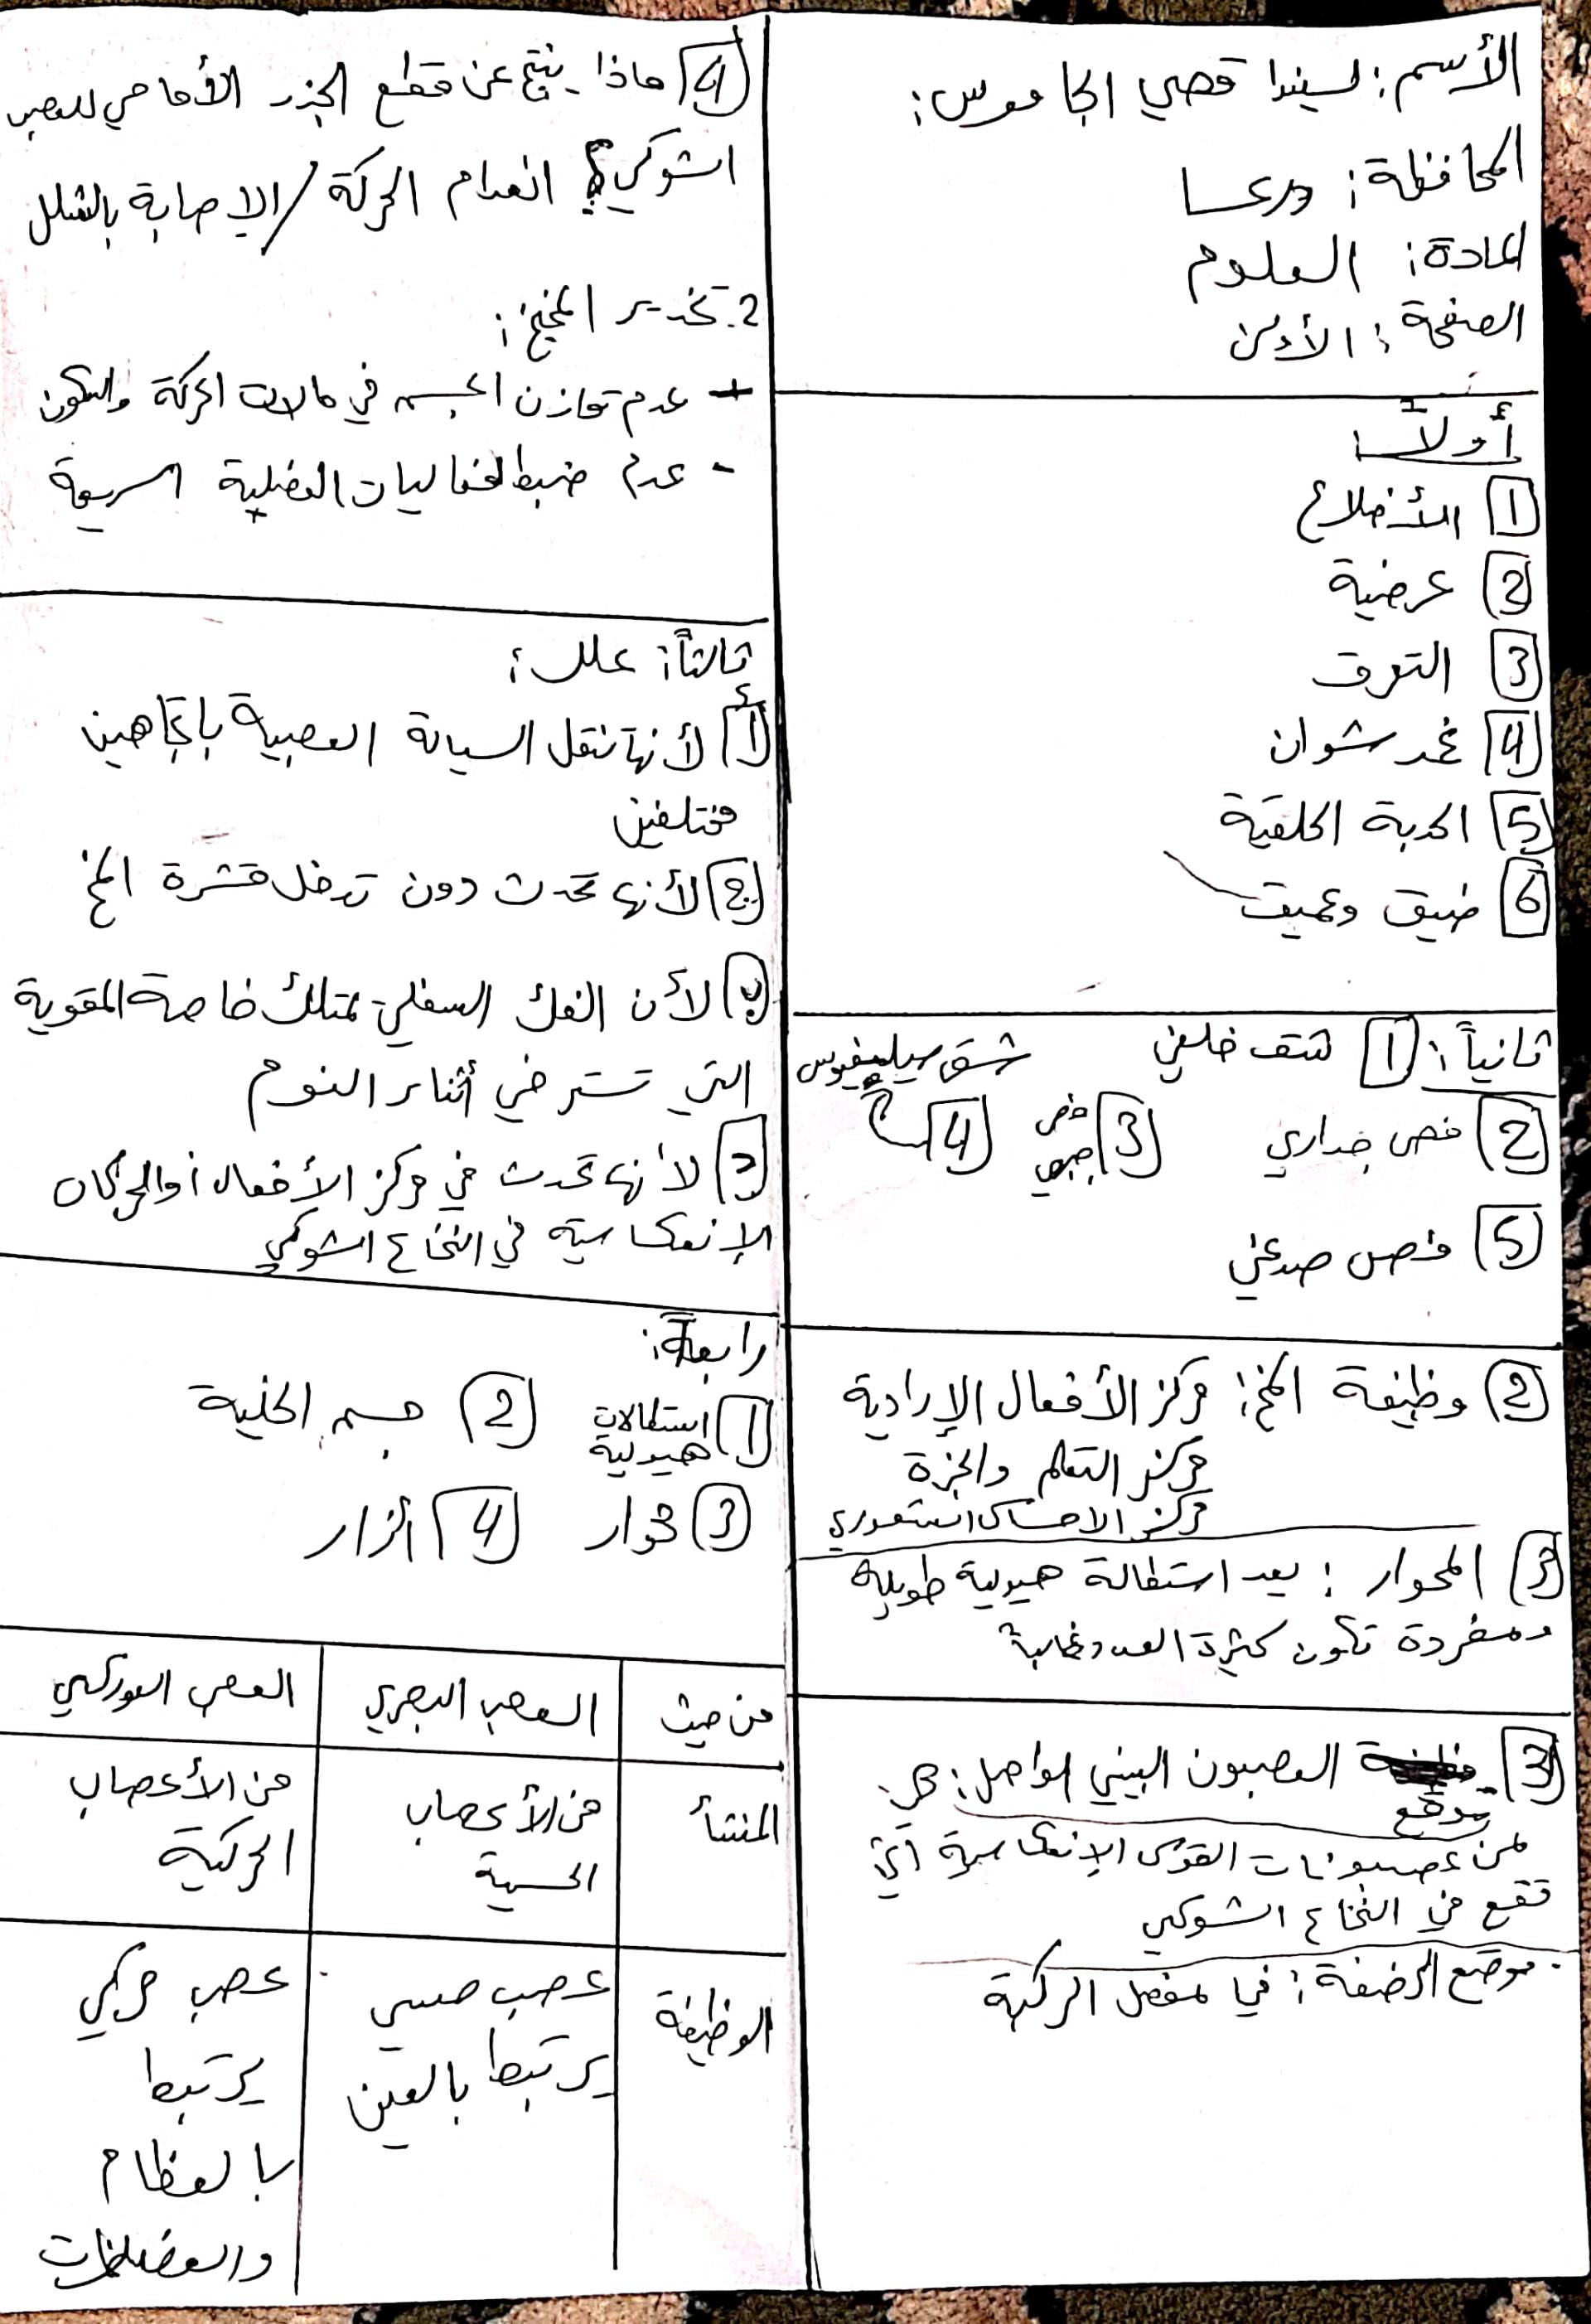 الأسم: لسيندا قصي الجاموس:
المحافظة: درعا
المادة: العلوم
الصفحة: الأولى
أولاً:
1 الأضلاع
2 عرضية
3 التعرق
4 غمد شوان
5 الحدبة الحلقية
6 ضيق وعميق
ثانياً: 1 شق خلفي
شق سيلفيوس
2 فص جداري 3 فص جبهي 4
5 فص صدغي
2 وظيفة المخ: مركز الأفعال الإرادية
مركز التعلم والخبرة
مركز الاحساس الشعوري
3 المحوار: يعد استطالة هيولية طويلة
ومفردة تكون كثيرة العدد غالباً
3 موقع العصبون البيني الواصل: هي
من عصبونات القوس الإنعكاسية أي
تقع في النخاع الشوكي
موضع الرضفة: في مفصل الركبة
4 ماذا ينتج عن قطع الجذر الأمامي للعصب
الشوكي؟ انعدام الحركة / الإصابة بالشلل
2. تخدير المخيخ:
- عدم توازن الجسم في حالات الحركة والسكون
- عدم ضبط الفعاليات العضلية السريعة
ثالثاً: علل:
أ لأنها تنقل السيالة العصبية باتجاهين
مختلفين
2 لأنها تحدث دون تدخل قشرة المخ
لأن الفك السفلي تمتلك خاصة المقوية
التي تسترخي أثناء النوم
لأنها تحدث في مركز الأفعال أو الحركات
الإنعكاسية في النخاع الشوكي
رابعاً:
1 استطالات هيولية 2 جسم الخلية
3 محوار 4 أزرار
من حيث العصب البصري العصب الوركي
المنشأ من الأعصاب الحسية من الأعصاب الحركية
الوظيفة عصب حسي يرتبط بالعين عصب حركي يرتبط بالعظام والعضلات